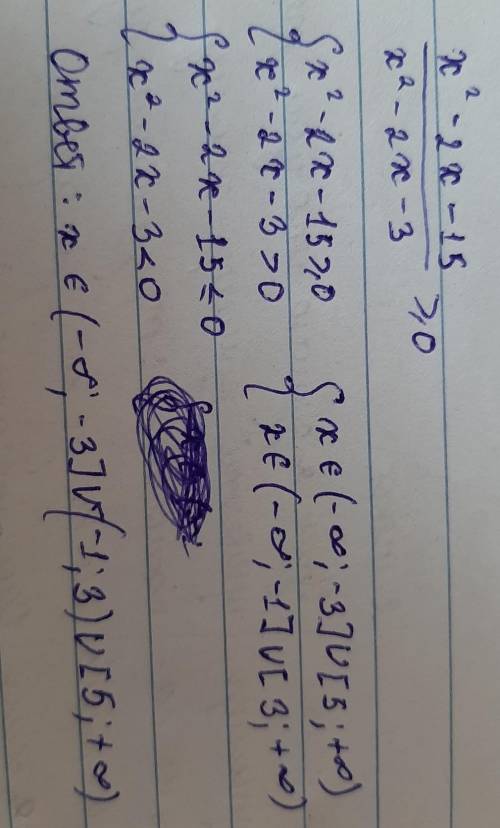 x² - 2x - 15
x² - 2x - 3 ⩾ 0
{ x² - 2x - 15 ⩾ 0 { x ∈ (-∞; -3] ∪ [5; +∞)
{ x² - 2x - 3 > 0 { x ∈ (-∞; -1] ∪ [3; +∞)
{ x² - 2x - 15 ≤ 0
{ x² - 2x - 3 < 0
Ответ: x ∈ (-∞; -3] ∪ (-1; 3) ∪ [5; +∞)